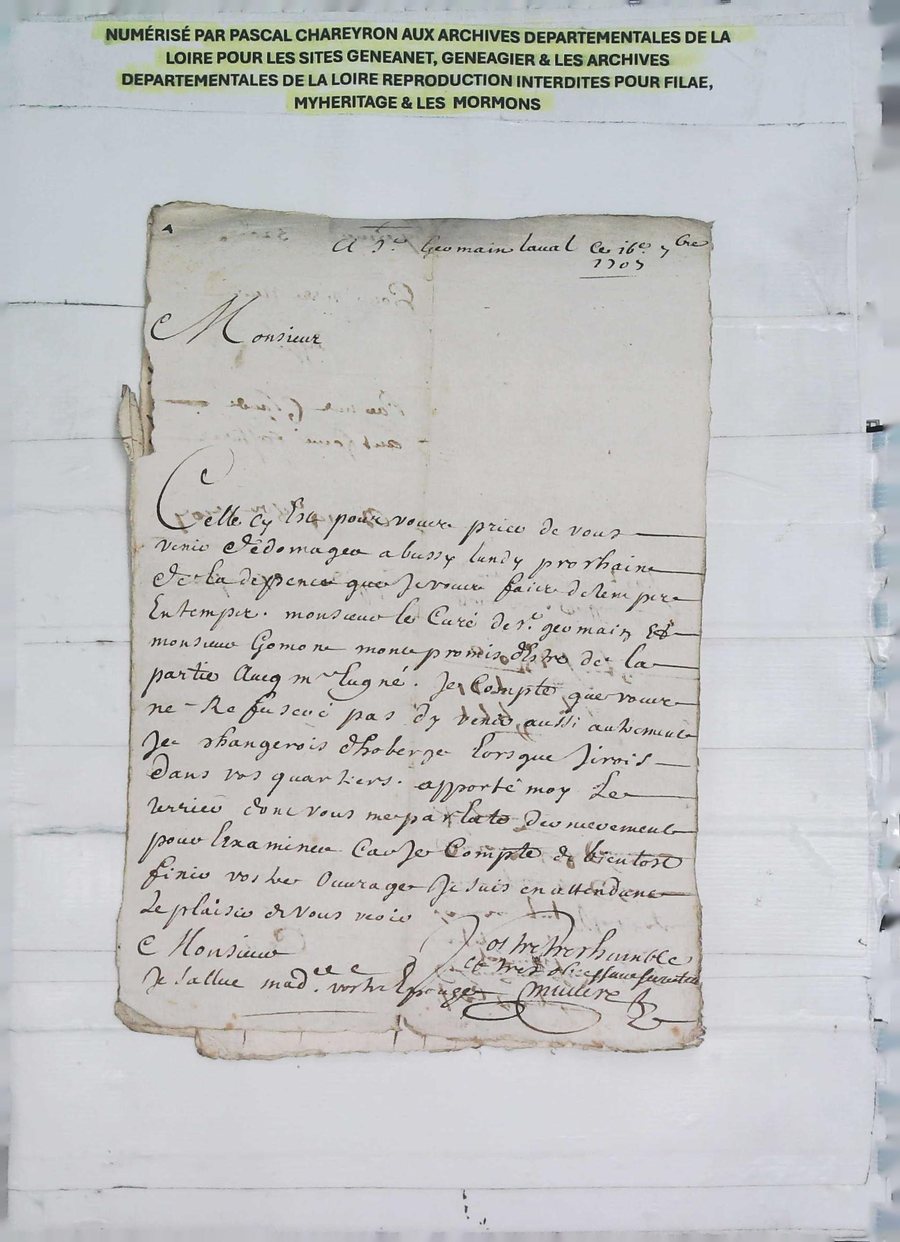 NUMÉRISÉ PAR PASCAL CHAREYRON AUX ARCHIVES DEPARTEMENTALES DE LA
LOIRE POUR LES SITES GENEANET, GENEAGIER & LES ARCHIVES
DEPARTEMENTALES DE LA LOIRE REPRODUCTION INTERDITES POUR FILAE,
MYHERITAGE & LES MORMONS
A St Germain laval ce 16e 7bre
1707
Monsieur
Celle cy Est pour vous prier de vous
venir dedomager a bussy lundy prochain
de la depence que Je vous faire de temps
En temps. monsieur le Curé de st germain Et
monsieur Gomone mont promis d'Estre de la
partie Aveq mr Lugné. Je Compte que vous
ne Refuseré pas dy venir aussi autrement
Je changerois dhoberge lorsque Jirois
Dans vos quartiers. apporté moy Le
terrier dont vous me parlate dernierement
pour lExaminer Car Je Compte de bientost
finir vostre Ouvrage Je suis en attendant
Le plaisir de vous voir
Monsieur
Vostre tres humble
et tres obeissant serviteur
Je sallue made vostre Epouze